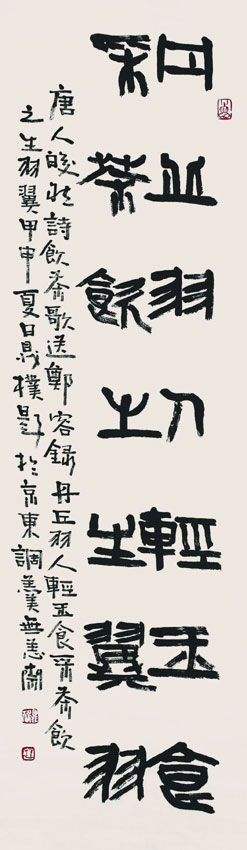 丹丘羽人輕玉食
采荼飲之生翼羽
唐人皎然詩飲茶歌送鄭容錄丹丘羽人輕玉食采茶飲
之生羽翼甲申夏日樸題於京東調羹無恙齋